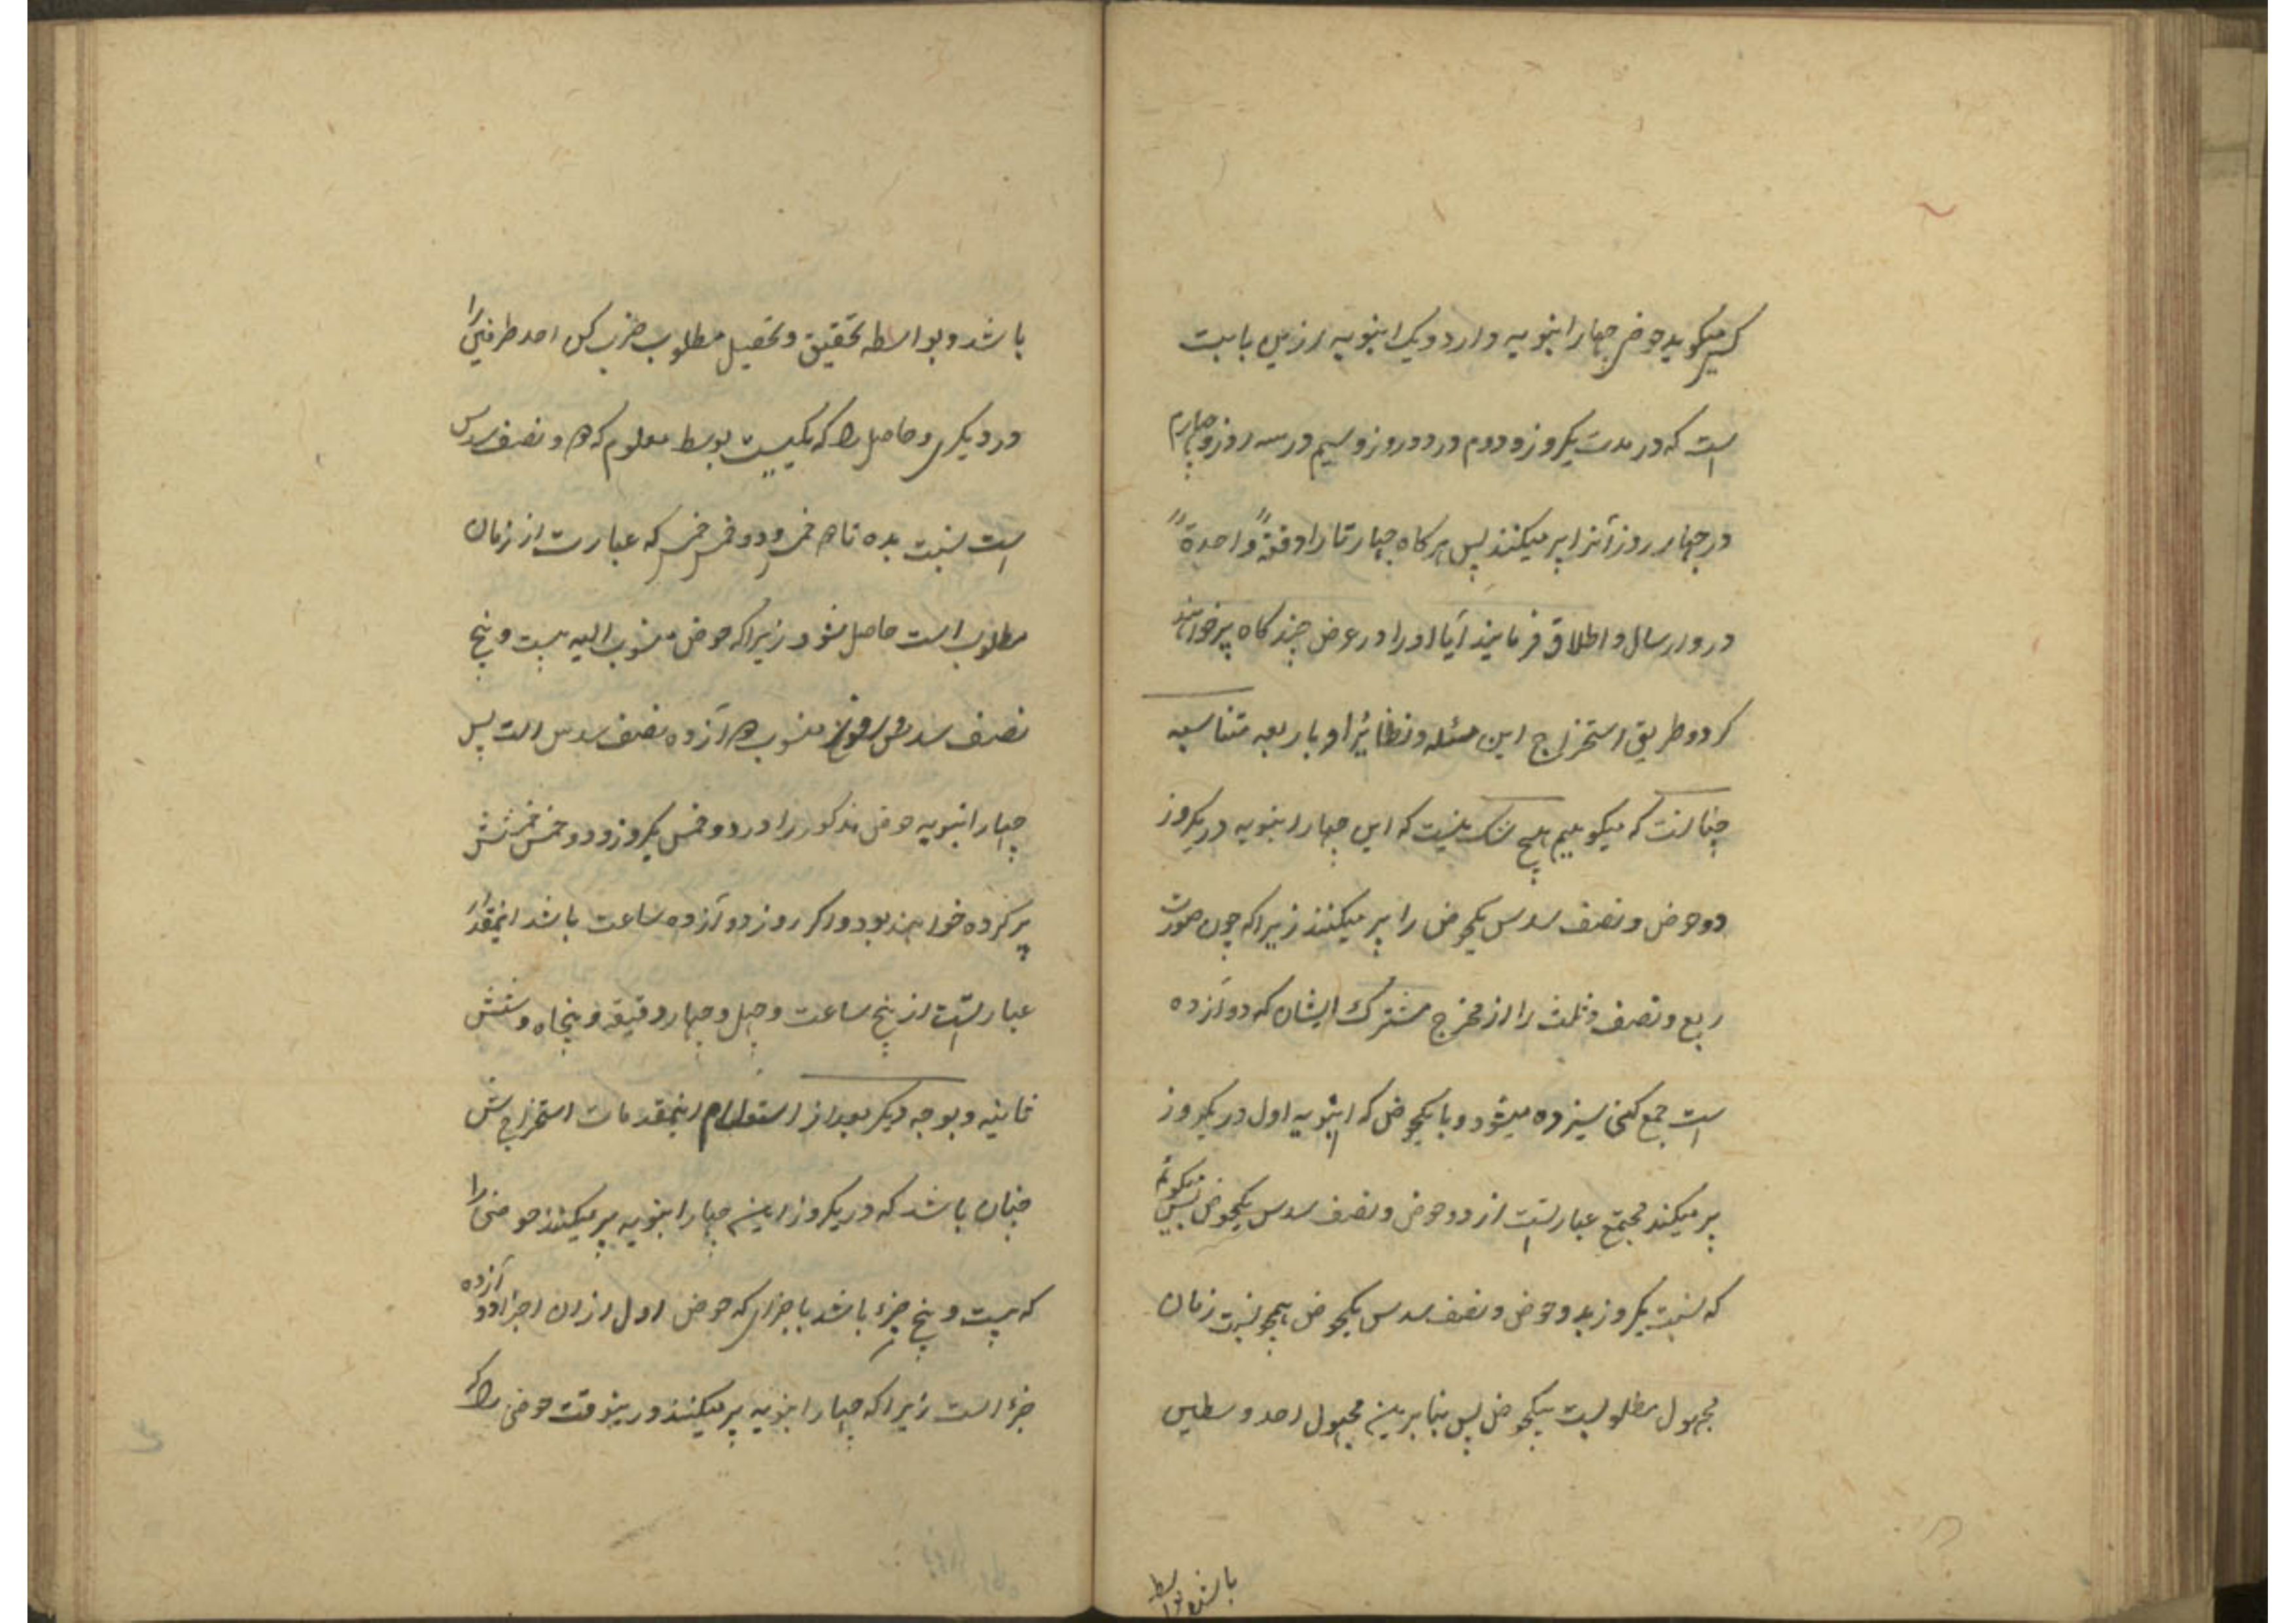 کسی میکوید حوض چهار انبوبه دارد و یک انبوبه ازین بابت
است که در مدت یکروز و دوم در دو روز و سیم در سه روز و چهارم
در چهار روز آنرا پر میکنند پس هرکاه چهارتا را دفعةً واحدةً
درو ارسال و اطلاق فرمایند آیا او را در عرض چند کاه پر خواهند
کرد و طریق استخراج این مسئله و نظائر او باربعه متناسبه
چنانست که میکوییم هیچ شک نیست که این چهار انبوبه در یکروز
دو حوض و نصف سدس یکحوض را پر میکنند زیرا که چون صورت
ربع و نصف و ثلث را از مخرج مشترک ایشان که دوآزده
است جمع کنی سیزده میشود و با یکحوض که انبوبه اول در یکروز
پر میکند مجتمع عبارتست از دو حوض و نصف سدس یکحوض پس میکوئیم
که نسبت یکروز بدو حوض و نصف سدس یکحوض همچو نسبت زمان
مجهول مطلوبست بیکحوض پس بنابرین مجهول احد وسطین
باشد و بواسطه
باشد و بواسطه تحقیق و تحصیل مطلوب ضرب کن احد طرفین را
در دیکری و حاصل را که یکیست بوسط معلوم که ۲ و نصف سدس
است نسبت بده تا ۲ خمس و دو خمس خمس که عبارت از زمان
مطلوب است حاصل شود زیرا که حوض منسوب الیه بیست و پنج
نصف سدس و منسوب دوآزده نصف سدس است پس
چهار انبوبه حوض مذکور را در دو خمس یکروز و دو خمس خمسش
پر کرده خواهند بود و اکر روز دوآزده ساعت باشد اینمقدار
عبارتست از پنج ساعت و چهل و چهار دقیقه و پنجاه و شش
ثانیه و بوجه دیکر بعد از استعلام اینمقدمات استخراجش
چنان باشد که در یکروز این چهار انبوبه پر میکنند حوضی را
که بیست و پنج جزء باشد باجزای که حوض اول ازان اجزا دوآزده
جزء است زیرا که چهار انبوبه پر میکنند درینوقت حوضی را که